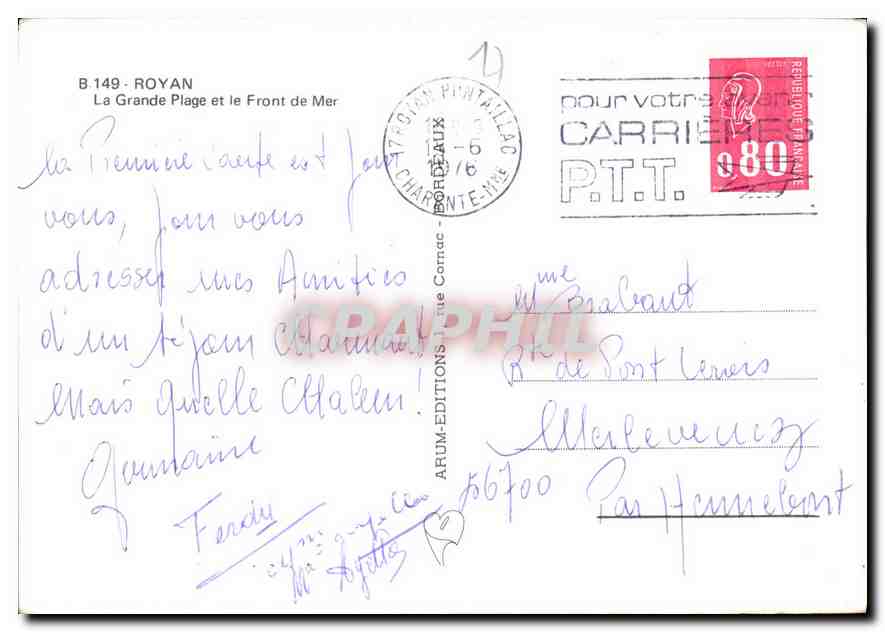 B 149 - ROYAN
La Grande Plage et le Front de Mer
17 ROYAN PONTAILLAC
-6
1976
CHARENTE-Mme
pour votre
CARRIÈRES
P.T.T.
REPUBLIQUE FRANÇAISE
0,80
La Première Carte est pour
vous, pour vous
adresser mes Amitiés
d'un séjour Charmant!
Mais Quelle Chaleur!
Germaine
Ferdie
ARUM-EDITIONS rue Cornac - BORDEAUX
CPAPHIL
Mme Brabant
Rte de Pont
Merlevenez
56700
Par Hennebont